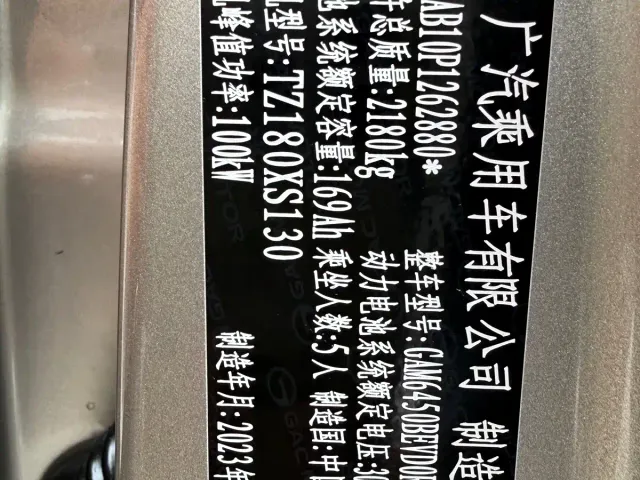 广汽乘用车有限公司 制造
AB10P1262880* 整车型号:GAM6450BEVD0
总质量:2180kg 动力电池系统额定电压:3
池系统额定容量:169Ah 乘坐人数:5人 制造国:中
型号:TZ180XS130
峰值功率:100kW 制造年月:2023年